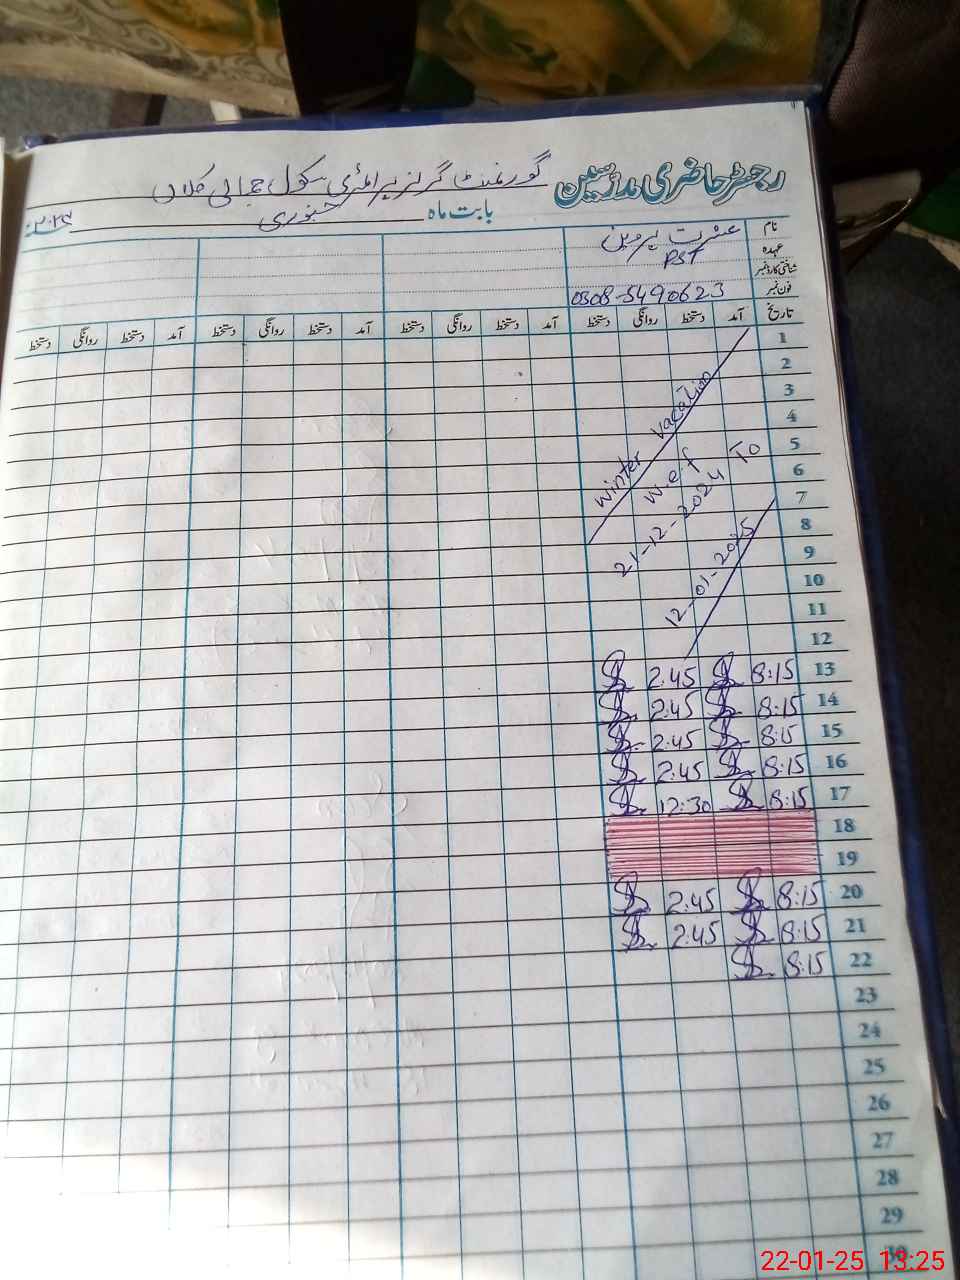 رجسٹر حاضری مدرسین گورنمنٹ گرلز پرائمری سکول جمالی کلاں
بابت ماہ جنوری
نام عشرت پروین
عہدہ PST
شناختی کارڈ نمبر
فون نمبر 0308-5490623
تاریخ آمد دستخط روانگی دستخط آمد دستخط روانگی دستخط آمد دستخط روانگی دستخط آمد دستخط روانگی دستخط
1
2
3
4
5
6
7
8
9
10
11
12
winter vacation
w.e.f
21-12-2024 To
12-01-2025
13 8:15 2:45
14 8:15 2:45
15 8:15 2:45
16 8:15 2:45
17 8:15 12:30
18
19
20 8:15 2:45
21 8:15 2:45
22 8:15
23
24
25
26
27
28
29
30
22-01-25 13:25